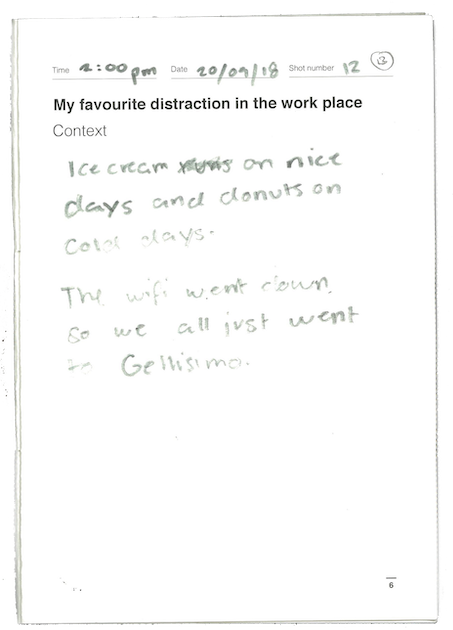 Time 2:00pm Date 20/09/18 Shot number 12 13
My favourite distraction in the work place
Context
Ice cream on nice
days and donuts on
cold days.
The wifi went down
so we all just went
to Gellisimo.
6